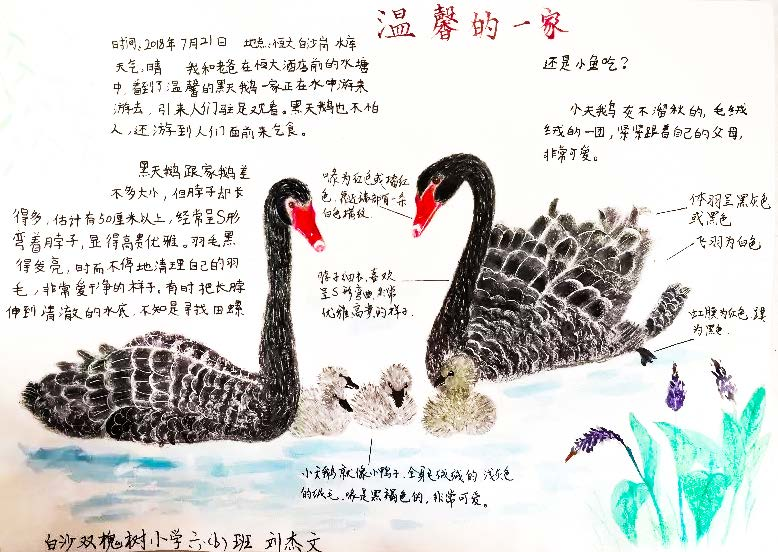 温馨的一家
时间:2018年7月21日 地点:恒大白沙岗水库
天气:晴 我和老爸在恒大酒店前的水塘
中,看到了温馨的黑天鹅一家正在水中游来
游去,引来人们驻足观看。黑天鹅也不怕
人,还游到人们面前来乞食。
黑天鹅跟家鹅差
不多大小,但脖子却长
得多,估计有50厘米以上,经常呈S形
弯着脖子,显得高贵优雅。羽毛黑
得发亮,时而不停地清理自己的羽
毛,非常爱干净的样子。有时把长脖
伸到清澈的水底,不知是寻找田螺
还是小鱼吃?
小天鹅灰不溜秋的,毛绒
绒的一团,紧紧跟着自己的父母,
非常可爱。
喙为红色或橘红
色,靠近端部有一条
白色横纹
脖子细长,喜欢
呈S形弯曲,非常
优雅高贵的样子.
体羽呈黑灰色
或黑色
飞羽为白色
虹膜为红色,蹼
为黑色.
小天鹅就像小鸭子,全身毛绒绒的浅灰色
的绒毛,喙是黑褐色的,非常可爱。
白沙双槐树小学六(6)班 刘杰文